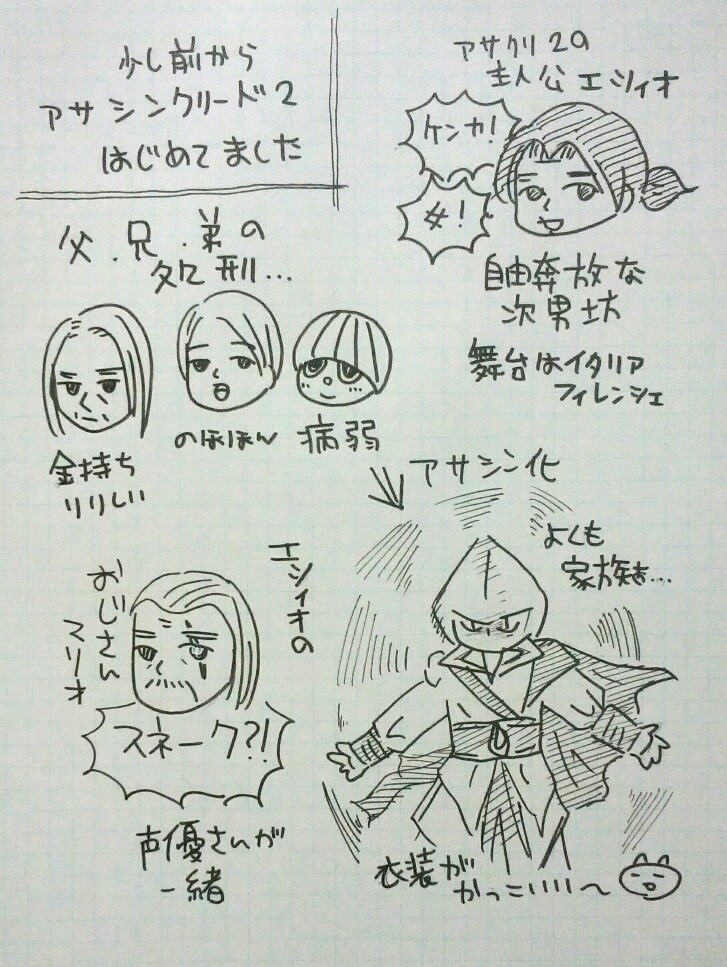 少し前から
アサシンクリード2
はじめてました
アサクリ2の
主人公エツィオ
ケンカ!
女!
自由奔放な
次男坊
舞台はイタリア
フィレンシェ
父.兄.弟の
処刑...
金持ち
りりしい
のほほん
病弱
アサシン化
よくも
家族を...
エツィオの
おじさん
マリオ
スネーク?!
声優さんが
一緒
衣装が
かっこいいい〜